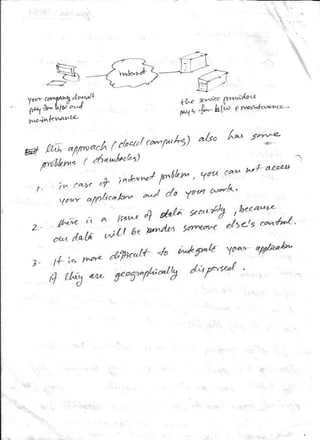 internet
your company doesn't
pay for h/w and
maintenance
the service providers
pays for h/w & maintenance.
this approach (cloud computing) also has some
problems (drawbacks)
1. in case of internet problem, you can not access
your application and do your work.
2. there is a issue of data security, because
our data will be under someone else's control.
3. It is more difficult to integrate your application
if they are geographically dispersed.